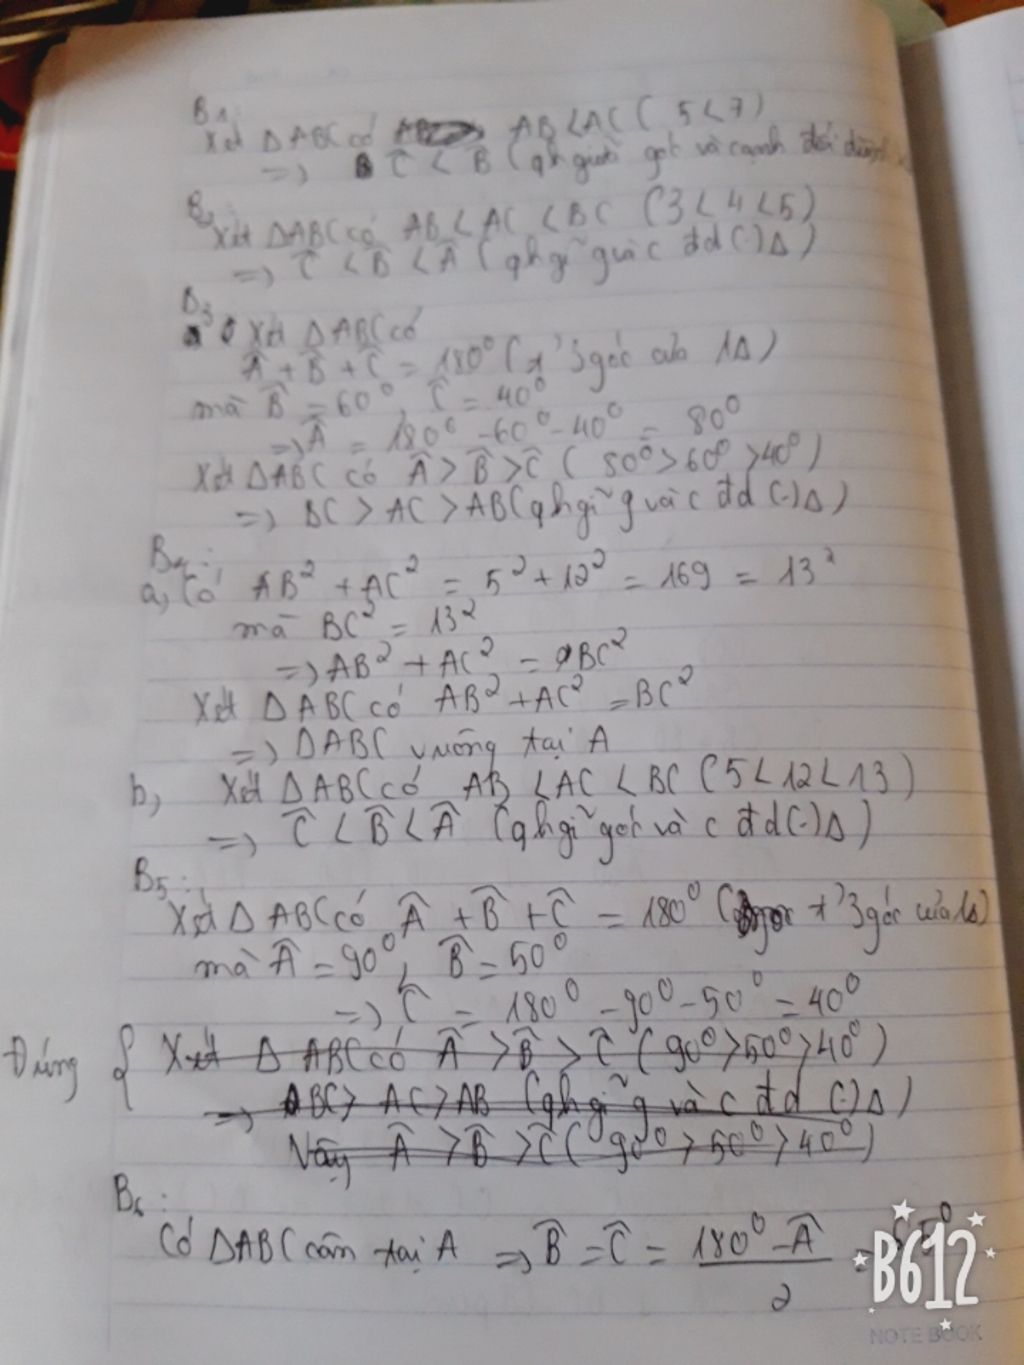 B1:
Xét ΔABC có AB < AC (5 < 7)
=> Ĉ < B̂ (qh giữa góc và cạnh đối diện
B2
Xét ΔABC có AB < AC < BC (3 < 4 < 5)
=> Ĉ < B̂ < Â (qh giữ g và c đd (.) Δ)
B3
Xét ΔABC có
Â + B̂ + Ĉ = 180° (t' 3 góc của 1Δ)
mà B̂ = 60°, Ĉ = 40°
=> Â = 180° - 60° - 40° = 80°
Xét ΔABC có Â > B̂ > Ĉ (80° > 60° > 40°)
=> BC > AC > AB (qh giữ g và c đd (.) Δ)
B4:
a, Có AB² + AC² = 5² + 12² = 169 = 13²
mà BC² = 13²
=> AB² + AC² = BC²
Xét ΔABC có AB² + AC² = BC²
=> ΔABC vuông tại A
b, Xét ΔABC có AB < AC < BC (5 < 12 < 13)
=> Ĉ < B̂ < Â (qh giữ góc và c đd (.) Δ)
B5:
Xét ΔABC có Â + B̂ + Ĉ = 180° (t' 3 góc của 1Δ)
mà Â = 90°, B̂ = 50°
=> Ĉ = 180° - 90° - 50° = 40°
Đúng { Xét Δ ABC có Â > B̂ > Ĉ (90° > 50° > 40°)
=> BC > AC > AB (qh giữ g và c đd (.) Δ)
Vậy Â > B̂ > Ĉ (90° > 50° > 40°)
B6:
Có ΔABC cân tại A => B̂ = Ĉ = (180° - Â)/2
B612
NOTE BOOK